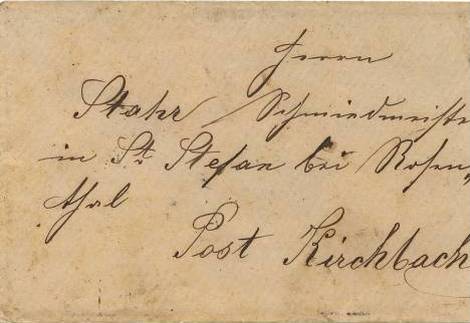 Herrn
Stahr Schmiedmeiste
in St. Stefan bei Rosen„
thal
Post Kirchbach